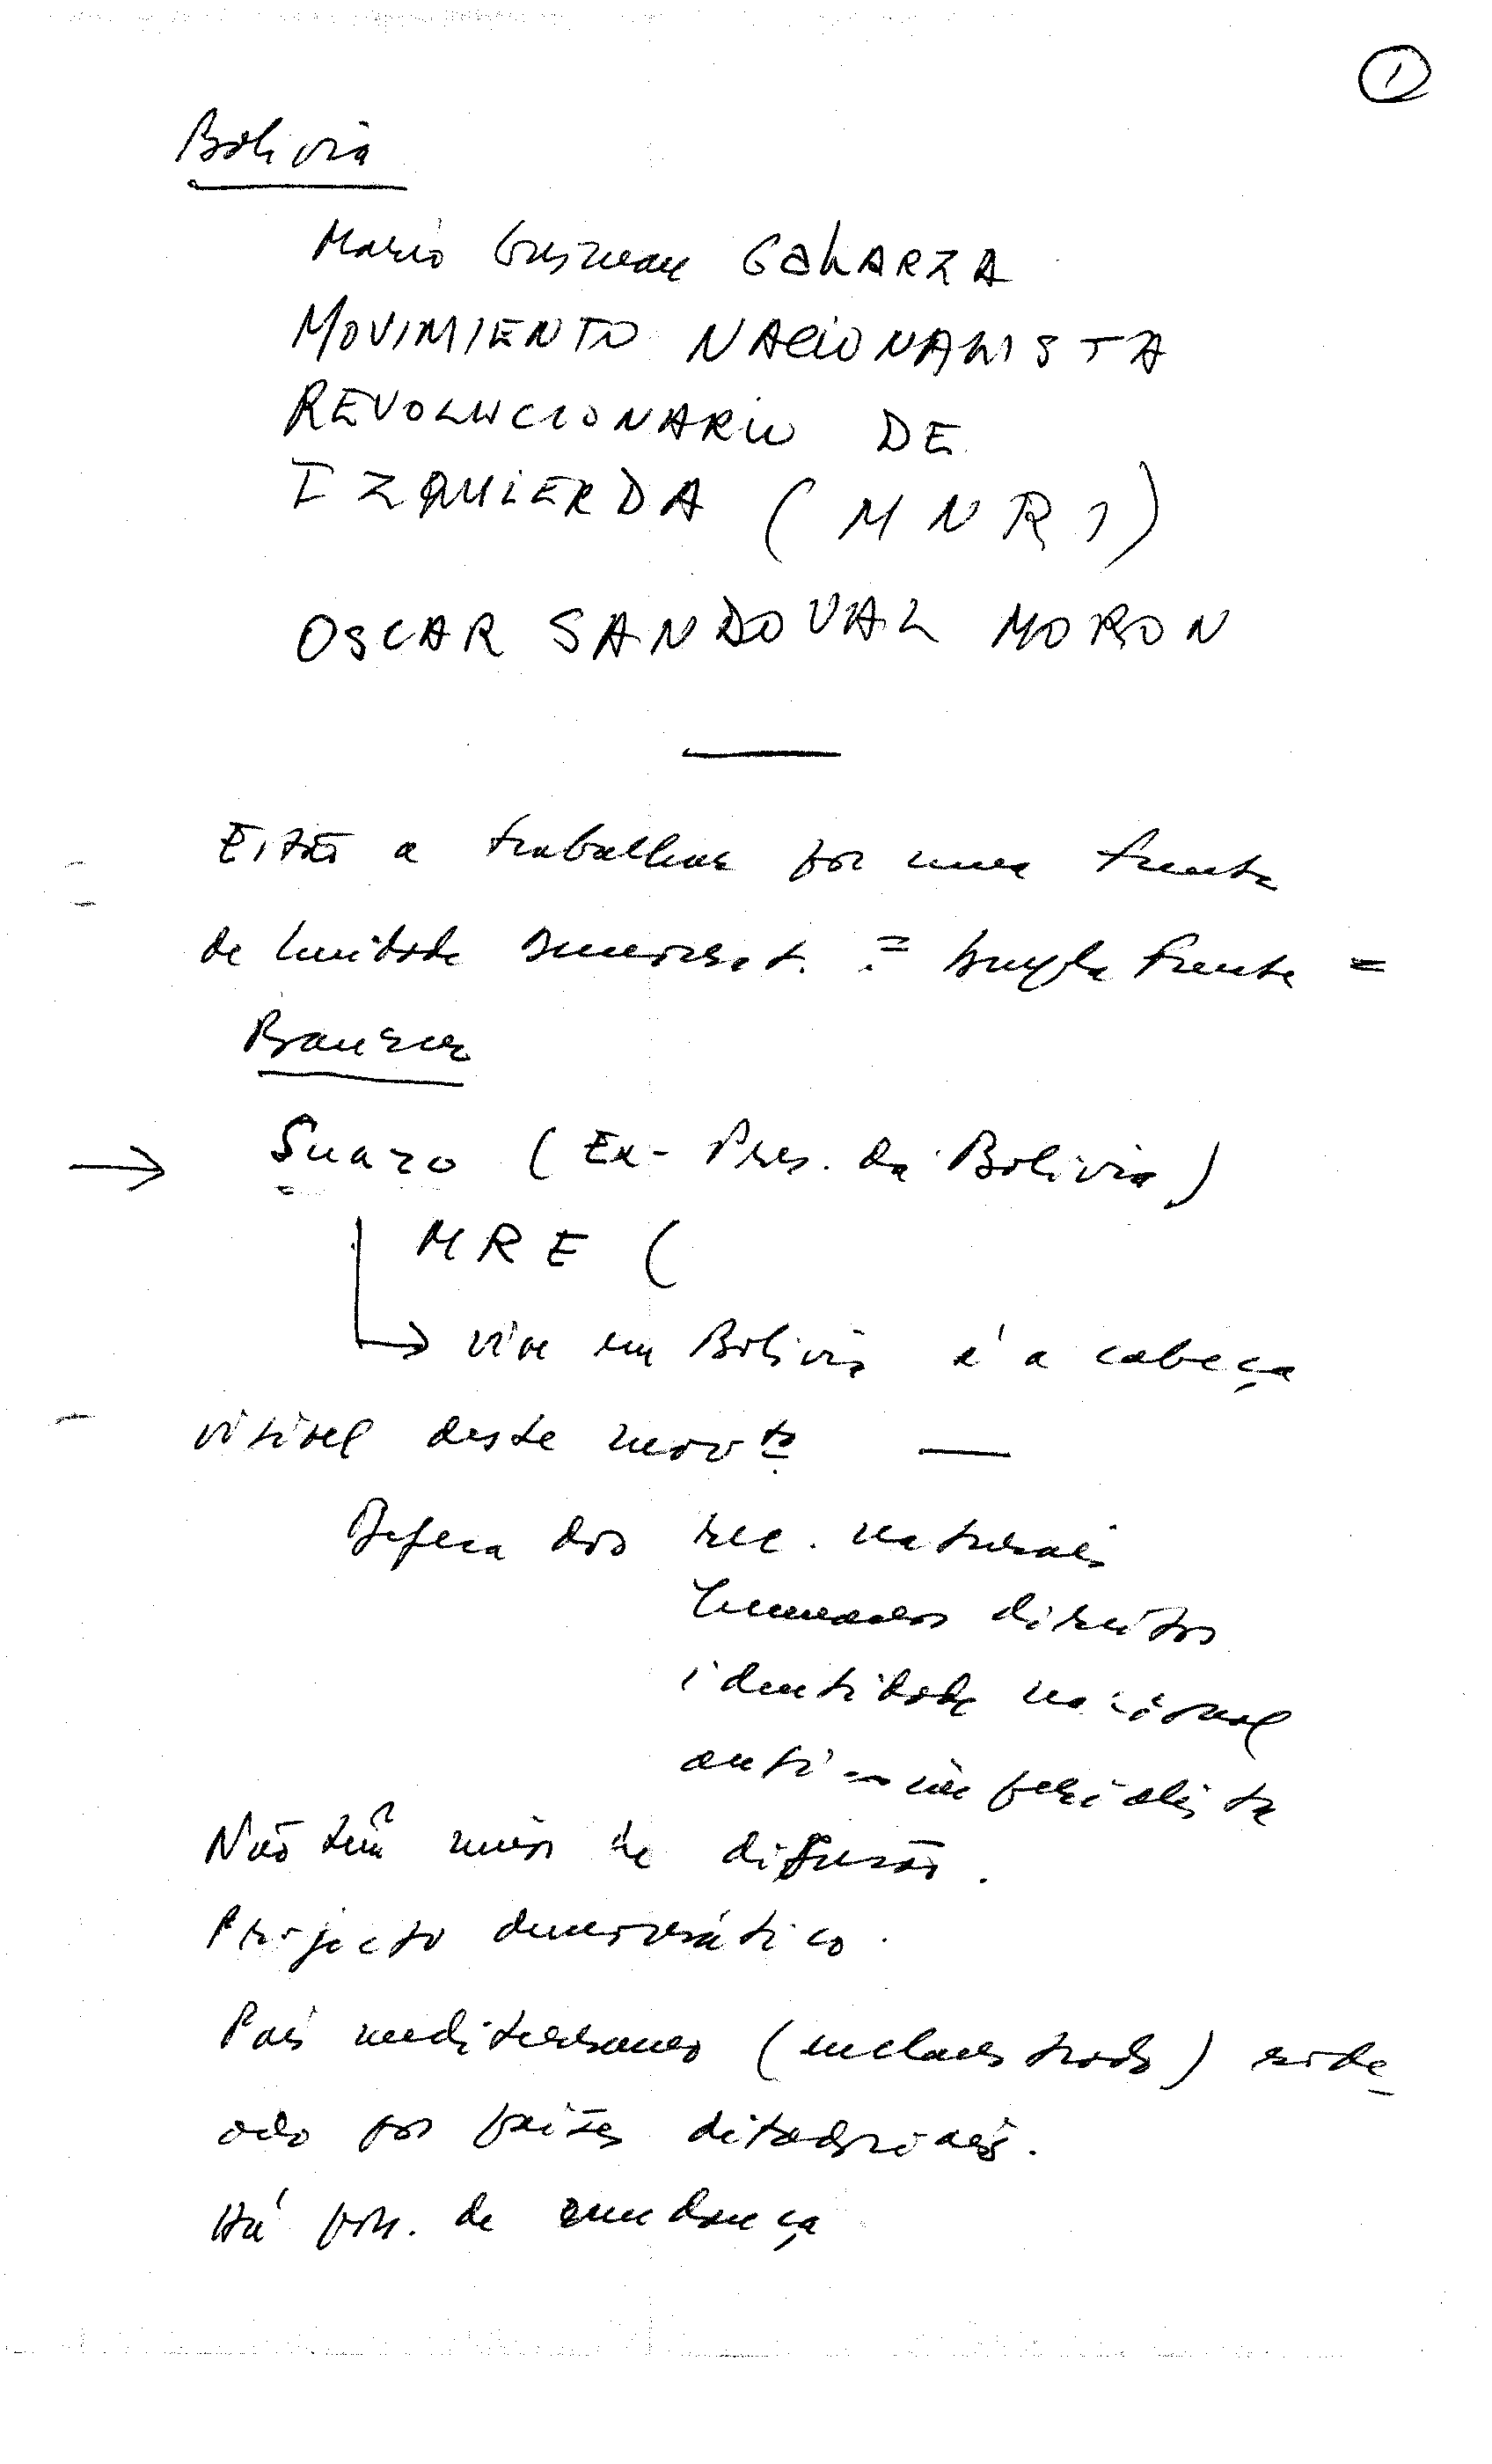 1
Bolivia
Mario Guzman GALARZA
MOVIMIENTO NACIONALISTA
REVOLUCIONARIO DE
IZQUIERDA (MNRI)
OSCAR SANDOVAL MORON
Estão a trabalhar por uma frente
de Unidade democrat. = frente =
Banzer
→ Suazo (Ex-Pres. da Bolivia)
MRE (
→ vive em Bolivia é a cabeça
visivel deste movto —
Defesa dos rec. naturais
humanos direitos
identidade nacional
anti-imperialista
Não têm meios de difusão.
Projecto democrático.
País mediterraneo (enclaustrado) rode-
ado por países ditadoriais.
Há poss. de mudança